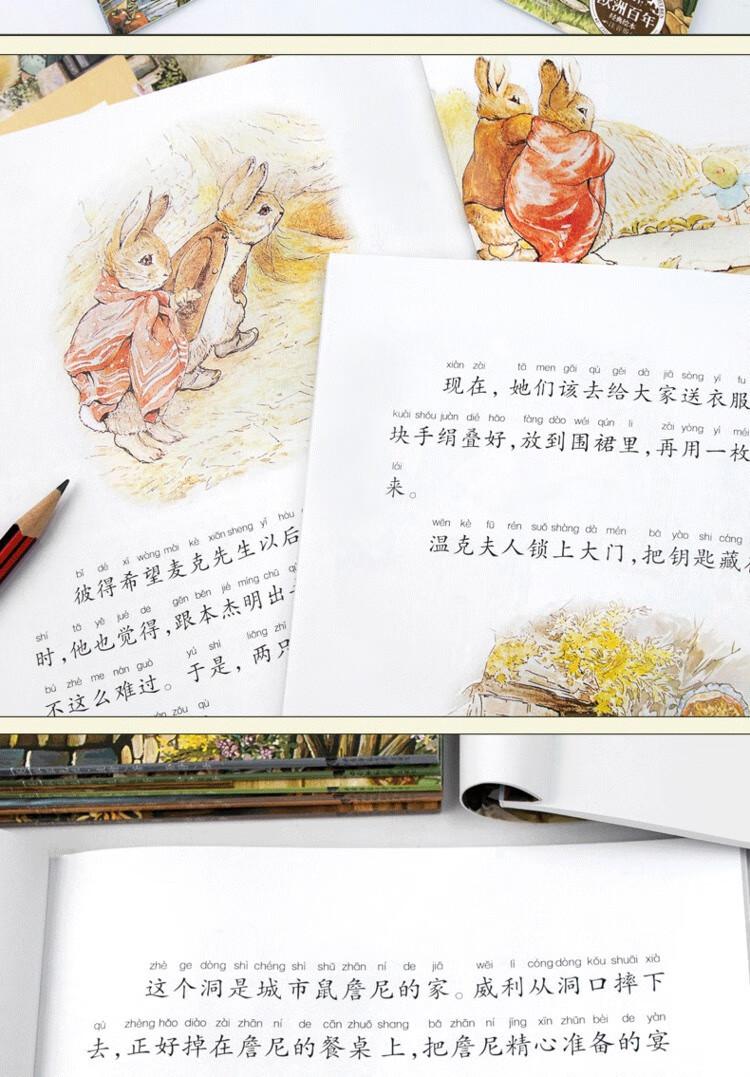 欧洲百年
经典绘本
xiàn zài tā men gāi qù gěi dà jiā sòng yī fu
现在，她们该去给大家送衣服
kuài shǒu juàn dié hǎo fàng dào wéi qún lǐ zài yòng yì méi
块手绢叠好，放到围裙里，再用一枚
lái
来。
wēn kè fū rén suǒ shàng dà mén bǎ yào shi cáng
温克夫人锁上大门，把钥匙藏
bǐ dé xī wàng mài kè xiān sheng yǐ hòu
彼得希望麦克先生以后
shí tā yě jué de gēn běn jié míng chū
时，他也觉得，跟本杰明出
bú zhè me nán guò yú shì liǎng zhī
不这么难过。于是，两只
zhè ge dòng shì chéng shì shǔ zhān ní de jiā wēi lì cóng dòng kǒu shuāi xià
这个洞是城市鼠詹尼的家。威利从洞口摔下
qù zhèng hǎo diào zài zhān ní de cān zhuō shang bǎ zhān ní jīng xīn zhǔn bèi de yàn
去，正好掉在詹尼的餐桌上，把詹尼精心准备的宴